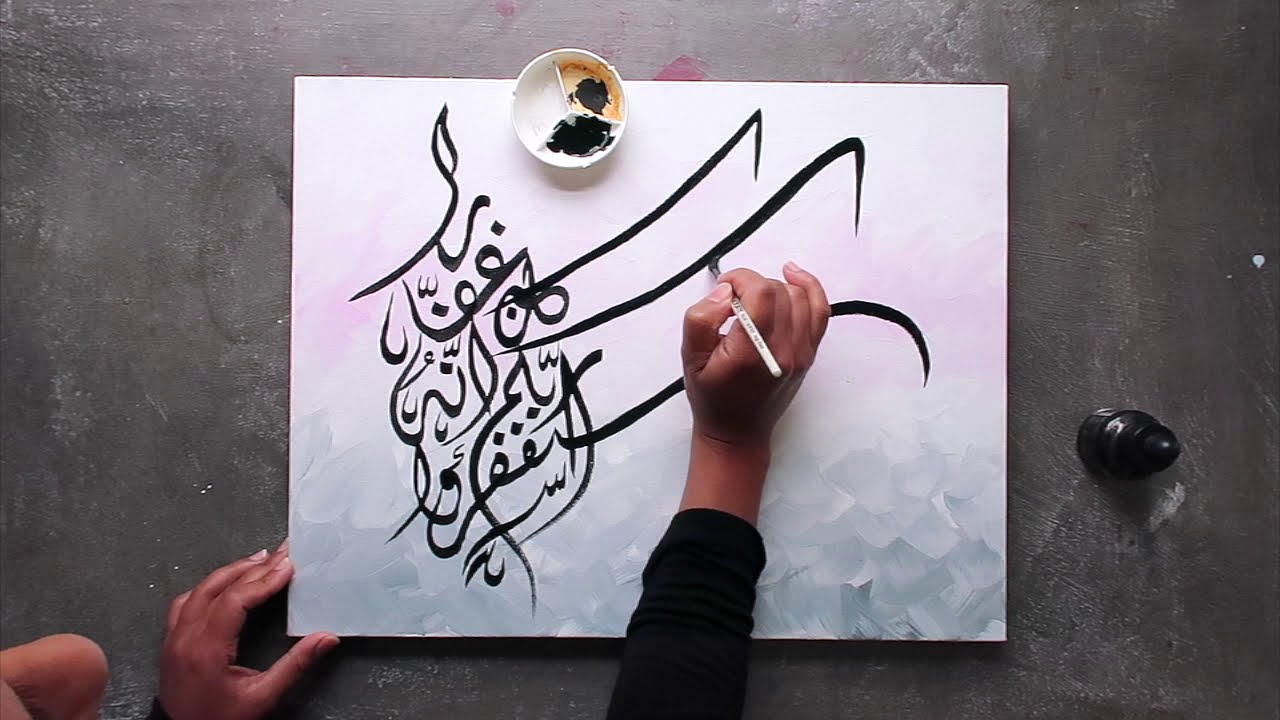 استغفروا ربّكم انّهُ كان غفّارا